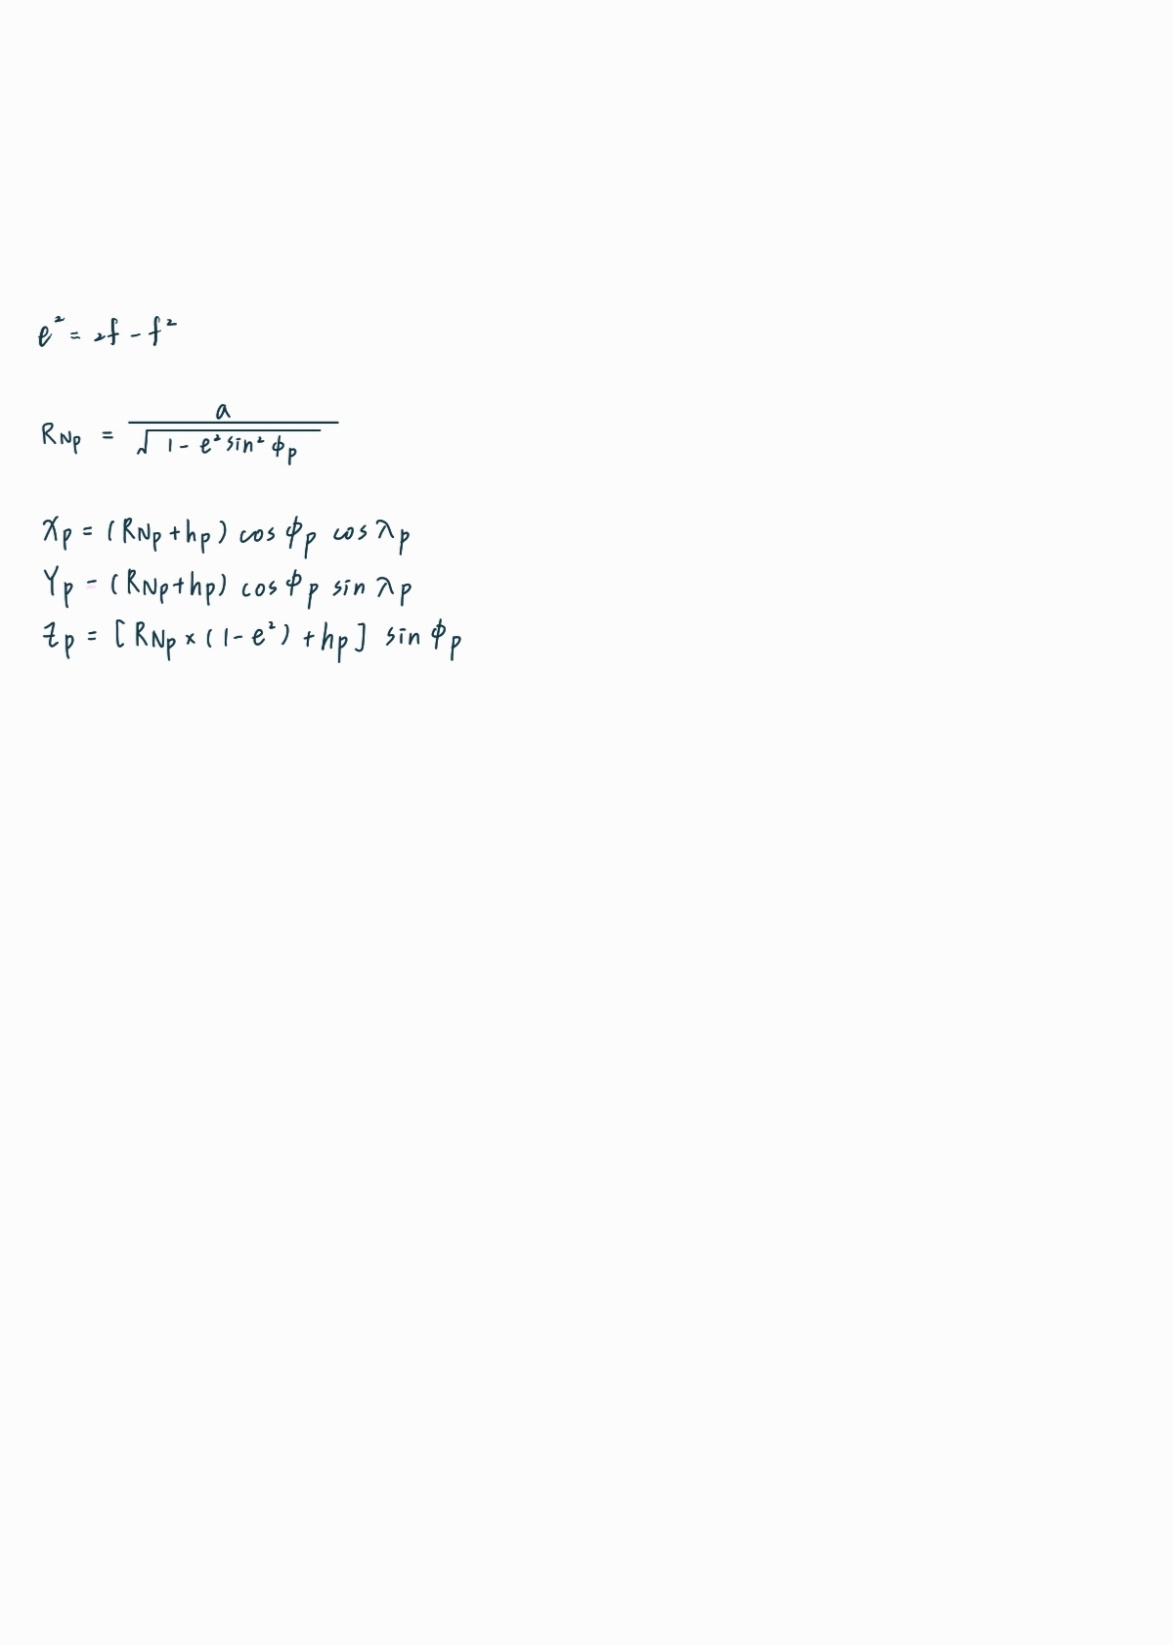 e² = 2f - f²
R_Np = a / √(1 - e² sin² ϕ_p)
X_p = (R_Np + h_p) cos ϕ_p cos λ_p
Y_p - (R_Np + h_p) cos ϕ_p sin λ_p
Z_p = [R_Np × (1 - e²) + h_p] sin ϕ_p